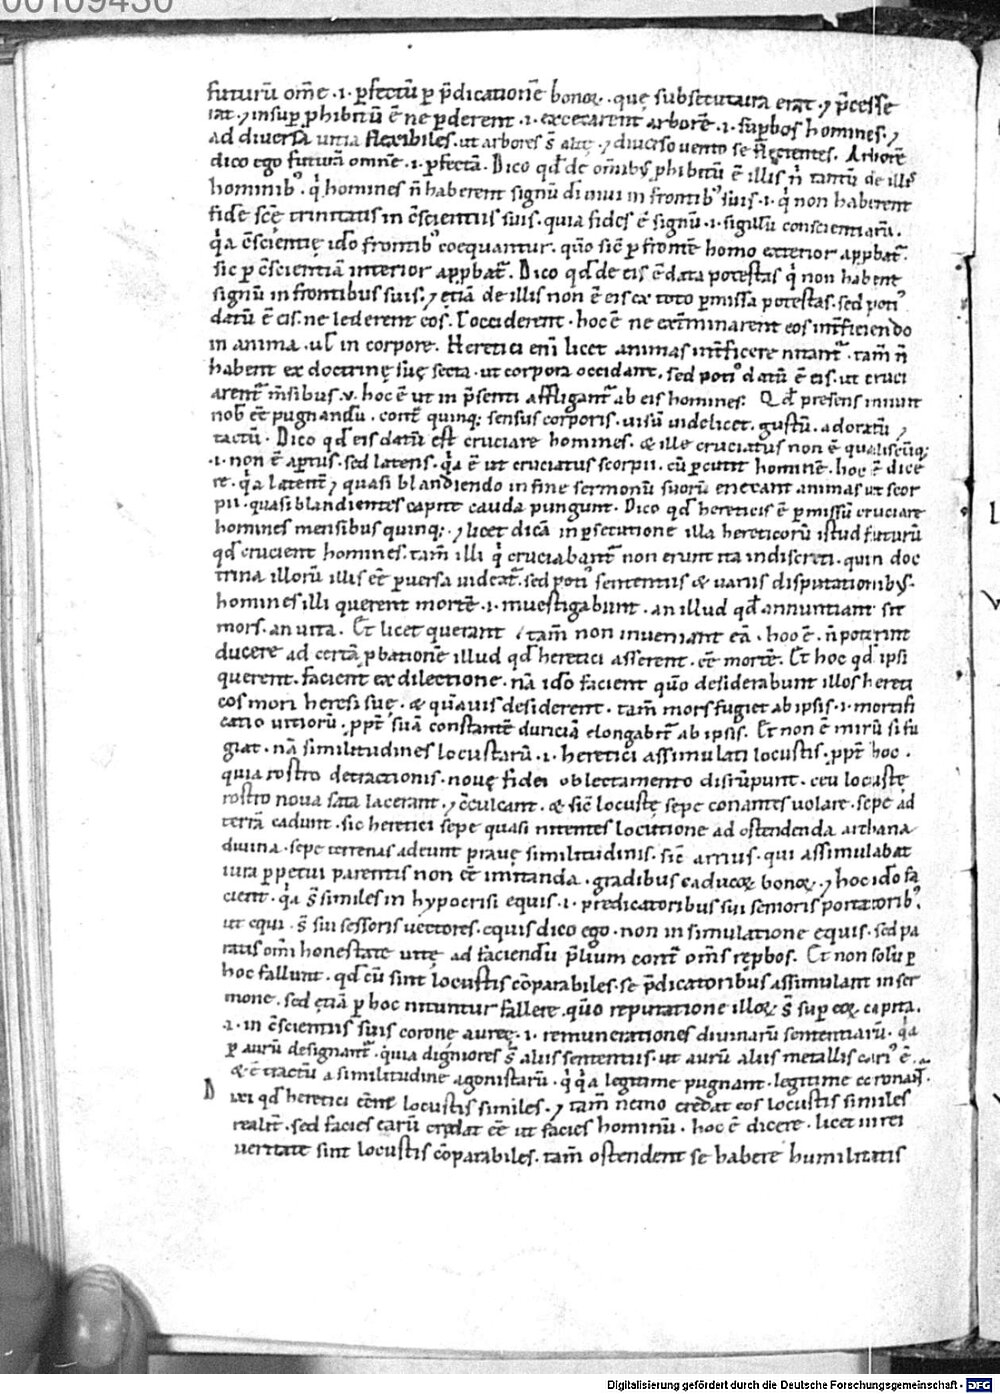 00109430
futurū om̄e · i · ꝑfectū ꝑ p̄dicationē bonoꝝ · quę subsecutura erat · ⁊ p̄cesse
rat · ⁊ insuꝑ ꝓhibitū ē ne ꝑderent · i · excecarent arborē · i · suꝑbos homines · ⁊
ad diversa uitia flexibiles · ut arbores s̄ altę · ⁊ diuerso uento se flectentes . Arborē
dico ego futurā omnē · i · ꝑfectā . Dico qd̄ de omībꝰ ꝓhibitū ē illis n̄ tantū de illis
hominibꝰ . q̇ homines n̄ haberent signū diuini in frontibꝰ suis · i · q̇ non haberent
fidē scē trinitatis in c̄scientiis suis . quia fides ē signū · i · sigillū conscientiarū .
q̇a c̄scientię ido frontibꝰ coequantur . quo sic̄ ꝑ frontē homo exterior apꝓbat᷑ .
sic ꝑ c̄scientiā interior apꝓbat᷑ . Dico qd̄ de eis ē data potestas q̇ non habent
signū in frontibus suis · ⁊ etiā de illis non ē eis ex toto ꝑmissa potestas . sed potiꝰ
datū ē eis . ne lederent eos . ł occiderent · hoc ē ne ext̄minarent eos int̄ficiendo
in anima . ul̄ in corpore . Heretici eni licet animas int̄ficere nitant᷑ · tam̄ n̄
habent ex doctrinę suę secta · ut corpora occidant . sed potiꝰ datū ē eis . ut cruci
arent᷑ m̄sibus · v · hoc ē ut in p̄senti affligant᷑ ab eis homines . Qd̄ presens innuit
nob̄ eē pugnandū . cont᷑ quinqꝫ sensus corporis . uisū uidelicet . gustū . adoratū ⁊
tactū . Dico qd̄ eis datū est cruciare homines . & ille cruciatus non ē qualiscūqꝫ
· i · non ē aꝑtus . sed latens . q̇a ē ut cruciatus scorpii . cū ꝑcutit hominē . hoc ē dice
re . q̇a latent᷑ ⁊ quasi blandiendo in fine sermonū suorū enecant animas ut scor
pii . quasi blandientes capite cauda pungunt . Dico qd̄ hereticis ē ꝑmissū cruciare
homines mensibus quinqꝫ · ⁊ licet dicā in ꝑsecutione illa hereticorū istud futurū
qd̄ crucient homines . tam̄ illi q̇ cruciabant᷑ non erunt ita indiscreti . quin doc
trina illorū illis eē ꝑuersa uideat᷑ . sed potiꝰ sententiis & uariis disputationibꝰ .
homines illi querent mortē · i · inuestigabunt . an illud qd̄ annuntiant sit
mors . an uita . Et licet querant / tam̄ non inueniant eā · hoc ē · n̄ poterint
ducere ad certā ꝓbationē illud qd̄ heretici asserent . eē mortē . Et hoc qd̄ ipsi
querent . facient ex dilectione . nā ido facient quo desiderabunt illos hereti
cos mori heresi suę . & quāuis desiderent . tam̄ mors fugiet ab ipsis · i · mortifi
catio uitiorū · ꝓpt᷑ suā constantē duriciā elongabit᷑ ab ipsis . Et non ē mirū si fu
giat · nā similitudines locustarū · i · heretici assimulati locustis · ꝓpt᷑ hoc .
quia rostro detractionis . nouę fidei oblectamento disrūpunt . ceu locustę
rostro noua sata lacerant . ⁊ c̄culcant . & sic̄ locustę sepe conantes uolare . sepe ad
terrā cadunt . sic heretici sepe quasi nitentes locutione ad ostendenda archana
diuina . sepe terrenas adeunt prauę similitudinis . sic̄ arrius . qui assimulabat
iura ꝑpetui parentis non eē imitanda . gradibus caducoꝝ bonoꝝ . ⁊ hoc ido fa
cient . q̇a s̄ similes in hypocrisi equis · i · predicatoribus sui semoris portatoribꝰ .
ut equi · s̄ sui sessoris uectores . equis dico ego · non in simulatione equis . sed pa
ratis om̄i honestate uitę ad faciendū p̄lium cont᷑ om̄s reꝓbos . Et non solū ꝑ
hoc fallunt . qd̄ cū sint locustis cōparabiles . se p̄dicatoribus assimulant in ser
mone . sed etiā ꝑ hoc nituntur fallere . quo reputatione illoꝝ s̄ suꝑ eoꝝ capita .
· i · in c̄scientiis suis coronę aureę · i · remunerationes diuinarū sententiarū . q̇a
ꝑ aurū designant᷑ . quia digniores s̄ aliis sententiis . ut aurū aliis metallis cariꝰ ē .
& ē tractū a similitudine agonistarū . q̇ q̇a legitime pugnant . legitime coronant᷑ .
D ixi qd̄ heretici eēnt locustis similes . ⁊ tam̄ nemo credat eos locustis similes
realit᷑ . sed facies earū credat eē ut facies hominū . hoc ē dicere . licet in rei
ueritate sint locustis cōparabiles . tam̄ ostendent se habere humilitatis
Digitalisierung gefördert durch die Deutsche Forschungsgemeinschaft - DFG